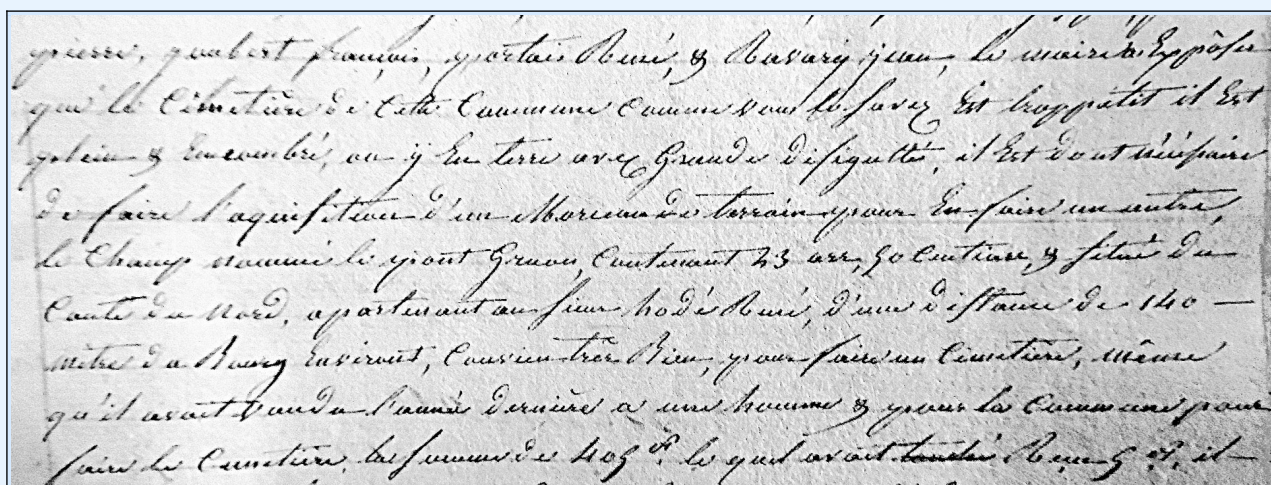 pierre, goubert françois, portais René, & Ravary jean, le maire a Exposer
que le Cimetière de Cette Commune comme vous le savez Est trop petit il Est
plein & Encombré, on y En terre avec Grande difigulté, il Est dont nécésaire
de faire l'aquisition d'un Morceau de terrain pour En faire un autre,
le Champ nommé le pont Gruau, Contenant 23 are, 50 Centiare, & situé du
Couté du nord, apartenant au sieur hodé René, d'une distance de 140 —
mètre du Bourg Environt, Convien très Bien, pour faire un Cimetière, même
qu'il avait vendu l'anné dernière a une homme & pour la Commune pour
faire le Cimetière, la somme de 405 f. le quel avait Reçu 5 f. il